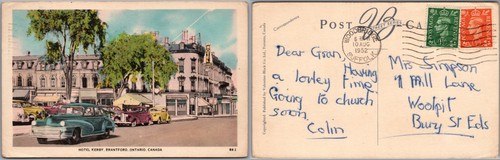 HOTEL KERBY, BRANTFORD, ONTARIO, CANADA
POST CARD
10 AUG
1952
SUFFOLK
Dear Gran,
Having
a lovley time
Going to church
soon.
Colin
Mis Simpson
1 Mill Lane
Woolpit
Bury St Eds